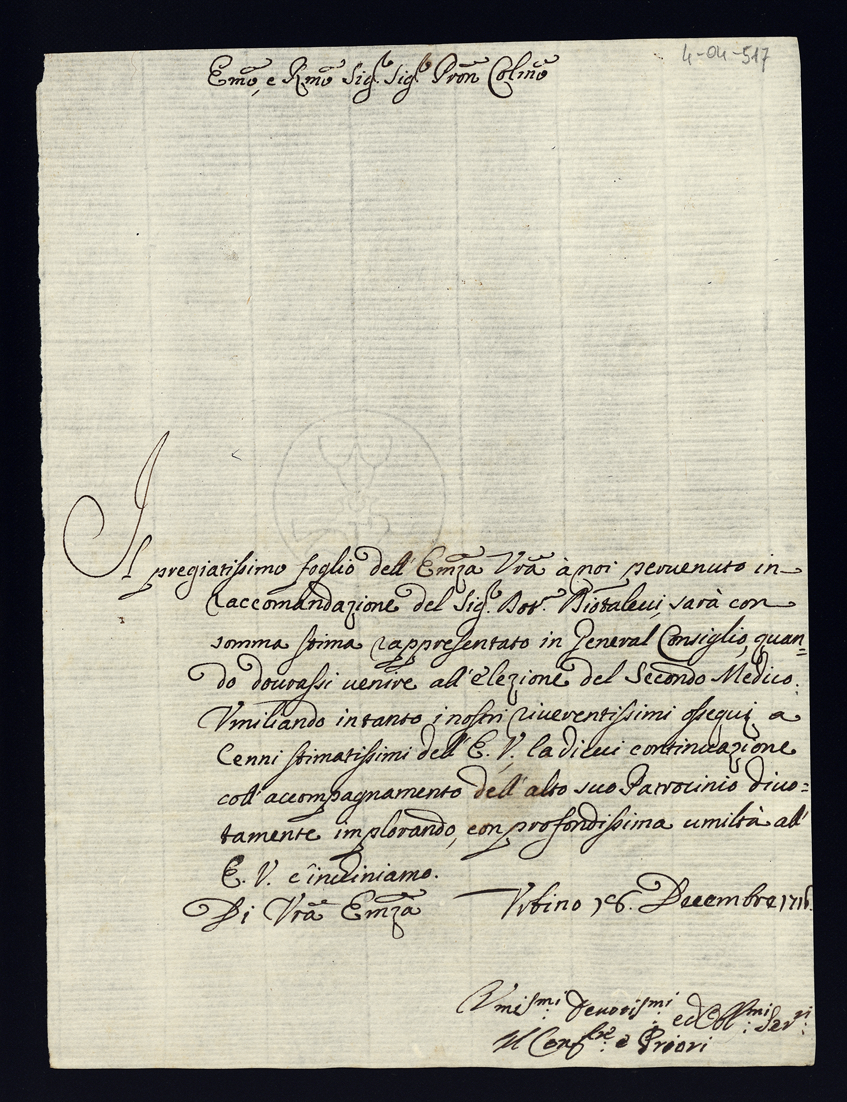 4-04-517
Emō, e Rmō Sig.r Sig.r Pron Colmō
Il pregiatissimo foglio dell'Emza Vrā à noi peruenuto in
raccomandazione del Sig.r Dot.r Piotaleui, sarà con
somma stima rappresentato in General Consiglio, quan=
do dourassi uenire all'elezione del Secondo Medico.
Vmiliando intanto i nostri riuerentissimi ossequi a
Cenni stimatissimi dell'E. V., la di cui continuazione
coll'accompagnamento dell'alto suo Patrocinio diuo=
tamente implorando, con profondissima umiltà all'
E. V. c'incliniamo.
Di Vrā Emza Vrbino 16. Decembre 171
Vmis.mi Deuotis.mi ed Obl.mi Ser.ri
Il Conf.re e Priori